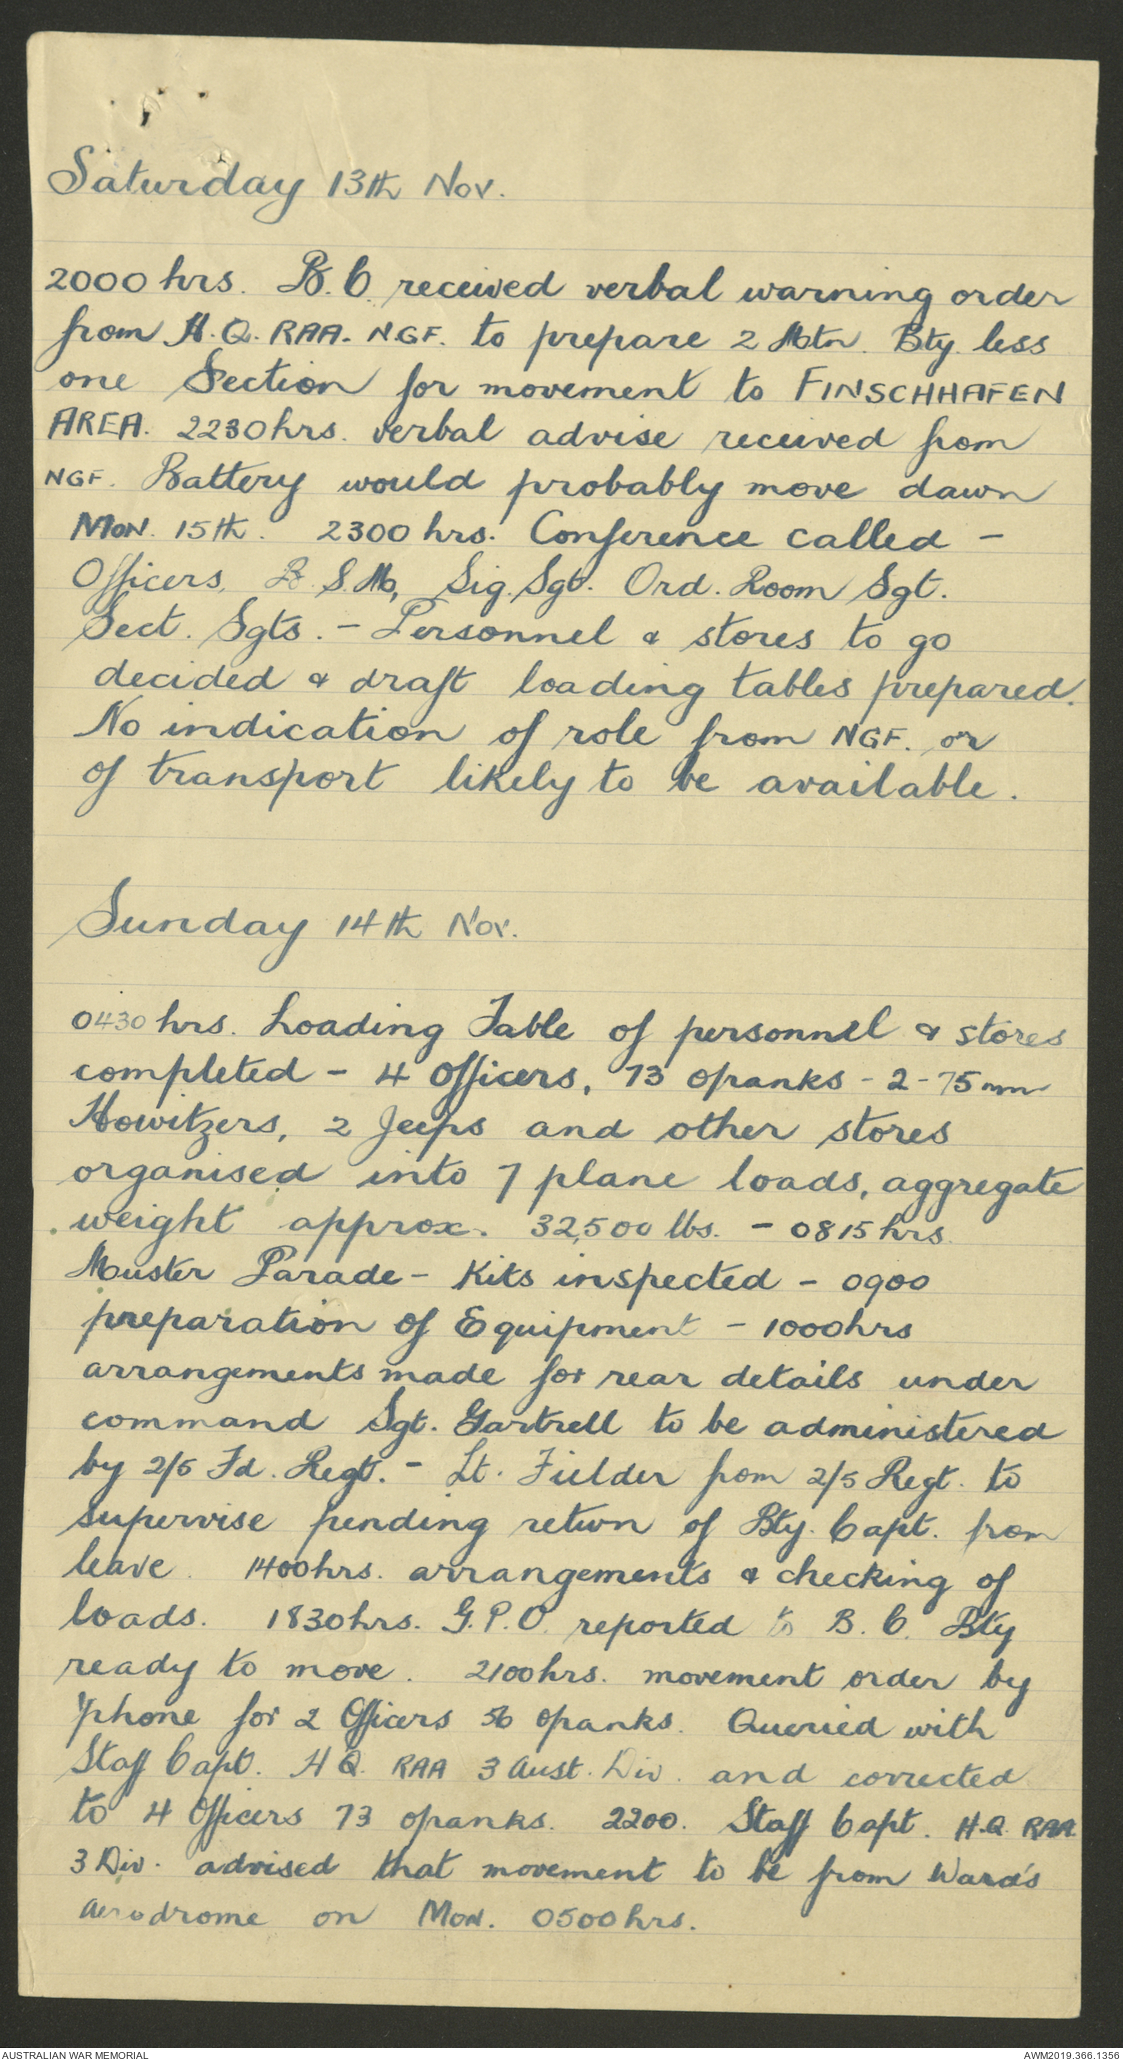 Saturday 13th Nov.
2000 hrs. B.C. received verbal warning order
from H.Q. RAA. NGF. to prepare 2 Mtn. Bty. less
one Section for movement to FINSCHHAFEN
AREA. 2230 hrs. verbal advise received from
NGF. Battery would probably move dawn
MON. 15th. 2300 hrs. Conference called -
Officers, B.S.M, Sig. Sgt. Ord. Room Sgt.
Sect. Sgts. - Personnel & stores to go
decided & draft loading tables prepared.
No indication of role from NGF. or
of transport likely to be available.
Sunday 14th Nov.
0430 hrs. Loading Table of personnel & stores
completed - 4 Officers, 73 opranks - 2 - 75mm
Howitzers, 2 Jeeps and other stores
organised into 7 plane loads, aggregate
weight approx. 32,500 lbs. - 0815 hrs.
Muster Parade - Kits inspected - 0900
preparation of Equipment - 1000hrs
arrangements made for rear details under
command Sgt. Gartrell to be administered
by 2/5 Fd. Regt. - Lt. Fielder from 2/5 Regt. to
supervise pending return of Bty. Capt. from
leave. 1400hrs. arrangements & checking of
loads. 1830hrs. G.P.O. reported to B.C. Bty
ready to move. 2100hrs. movement order by
'phone for 2 Officers 56 opranks. Queried with
Staff Capt. HQ. RAA 3 Aust. Div. and corrected
to 4 Officers 73 opranks. 2200. Staff Capt. H.Q. RAA
3 Div. advised that movement to be from Ward's
Aerodrome on MON. 0500hrs.
AUSTRALIAN WAR MEMORIAL
AWM2019.366.1356